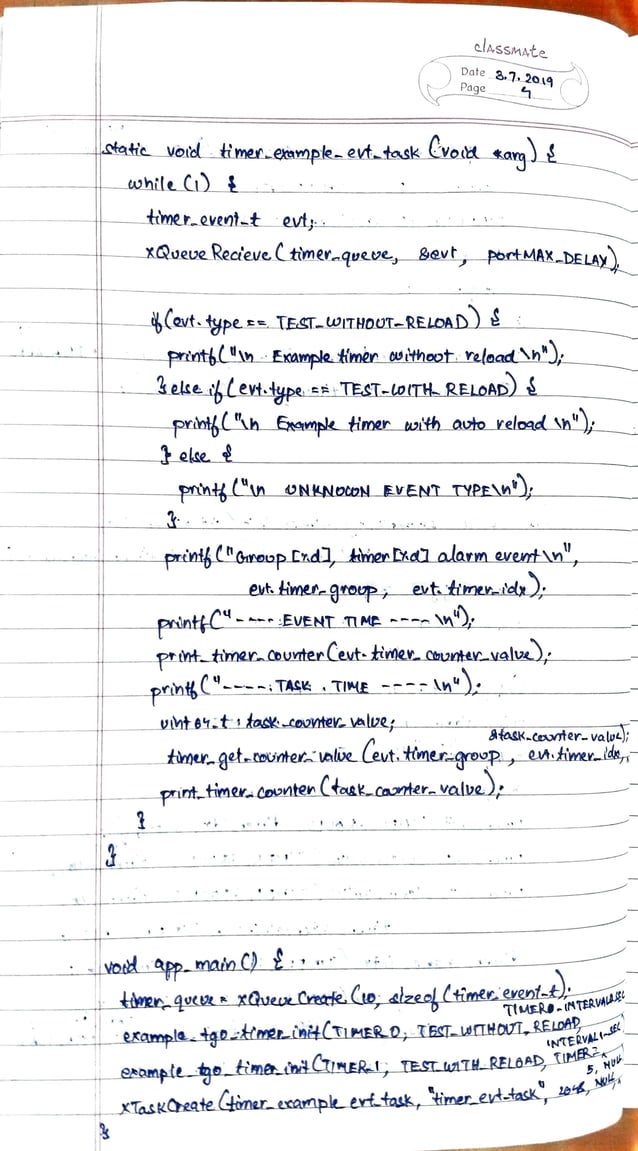 classmate
Date 3.7.2019
Page 4
static void timer_example_evt_task (void *arg) {
while (1) {
timer_event_t evt;
xQueueRecieve (timer_queue, &evt, portMAX_DELAY);
if (evt.type == TEST_WITHOUT_RELOAD) {
printf("\n Example timer without reload \n");
} else if (evt.type == TEST_WITH_RELOAD) {
printf("\n Example timer with auto reload \n");
} else {
printf ("\n UNKNOWN EVENT TYPE\n");
}
printf ("Group [%d], timer [%d] alarm event \n",
evt.timer_group, evt.timer_idx);
printf ("---- EVENT TIME ---- \n");
print_timer_counter (evt.timer_counter_value);
printf ("---- TASK TIME ---- \n");
uint64_t task_counter_value;
&task_counter_value);
timer_get_counter_value (evt.timer_group, evt.timer_idx,
print_timer_counter (task_counter_value);
}
}
void app_main() {
timer_queue = xQueueCreate (10, sizeof (timer_event_t));
TIMER0_INTERVAL0_SEC
example_tg0_timer_init (TIMER0, TEST_WITHOUT_RELOAD,
INTERVAL1_SEC
example_tg0_timer_init (TIMER_1, TEST_WITH_RELOAD, TIMER
5, NULL
xTaskCreate (timer_example_evt_task, "timer_evt-task", 2048, NULL,
}